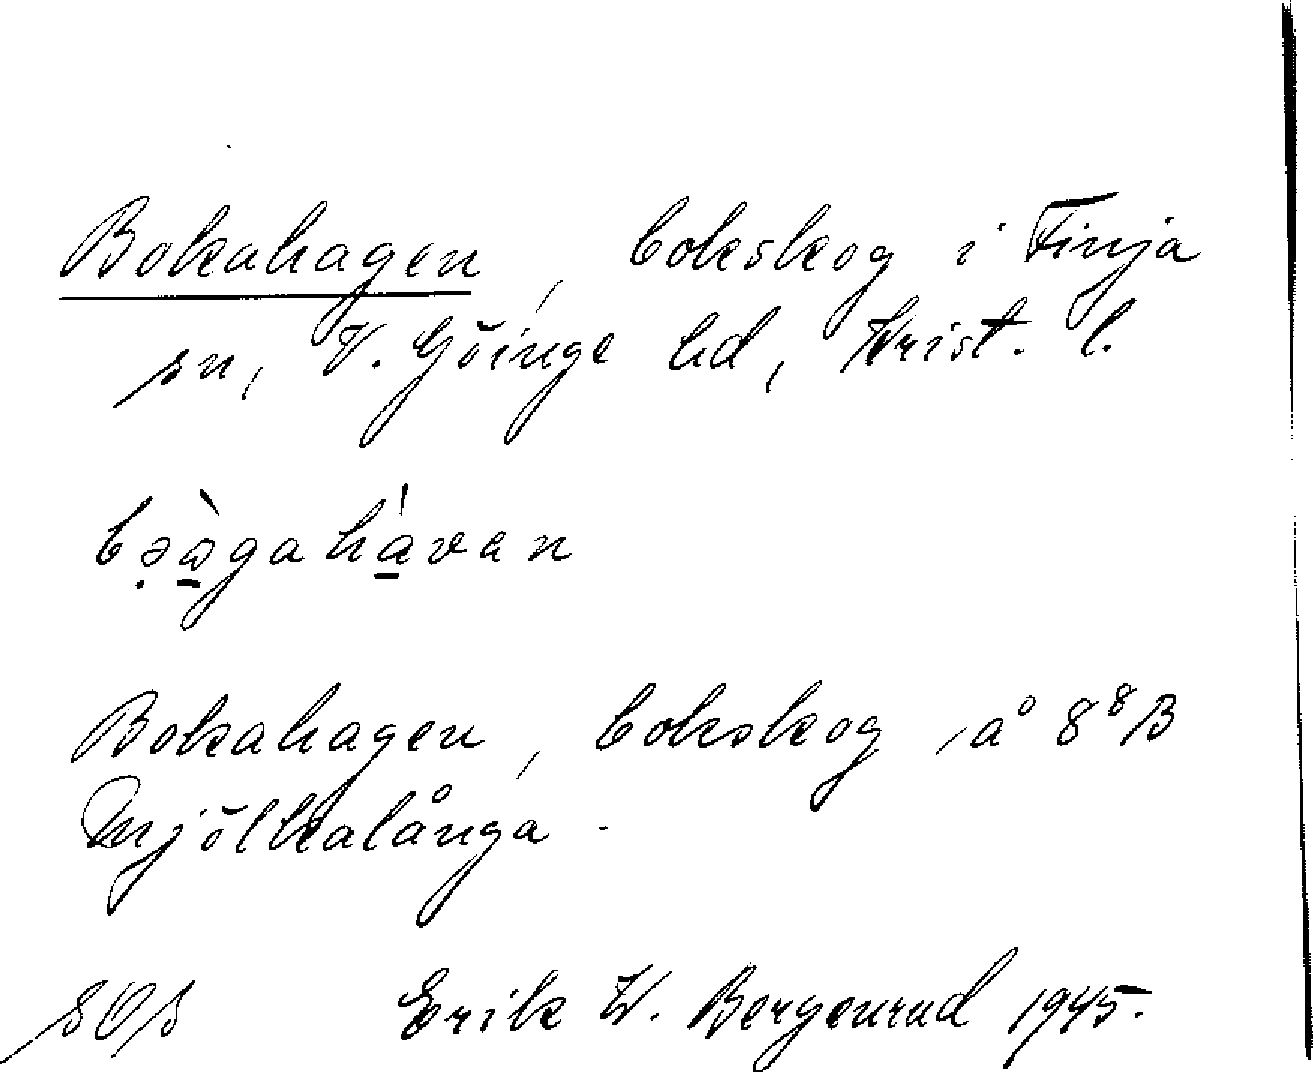 Bokahagen, bokskog i Finja
sn, V. Göinge hd, Krist. l.
bə̣ὼ̱gahá̱van
Bokahagen, bokskog, å 8⁸ B
Mjölkalånga.
SOS Erik W. Bergenrud 1945.